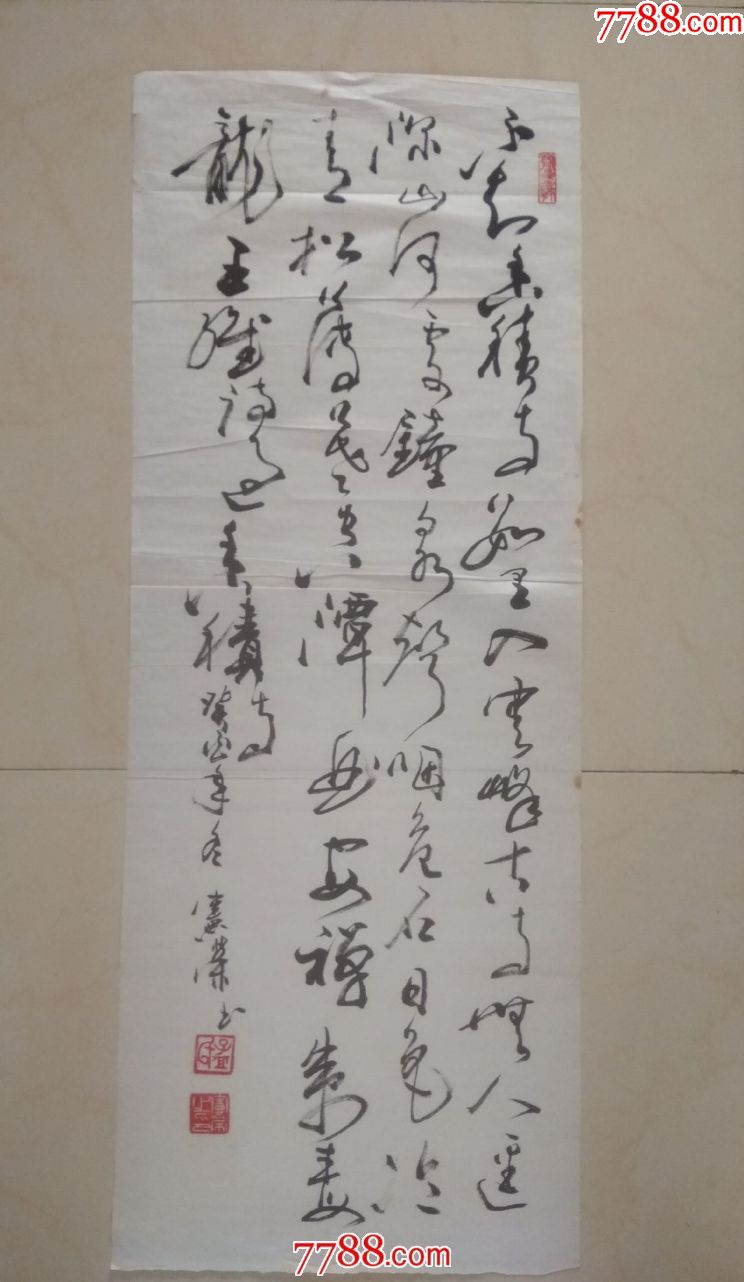 7788.com
不知香積寺數里入雲峰古寺無人逕
深山何處鐘泉聲咽危石日色冷
青松薄暮空潭曲安禪制毒
龍王維詩過香積寺
癸酉年冬憲書
7788.com